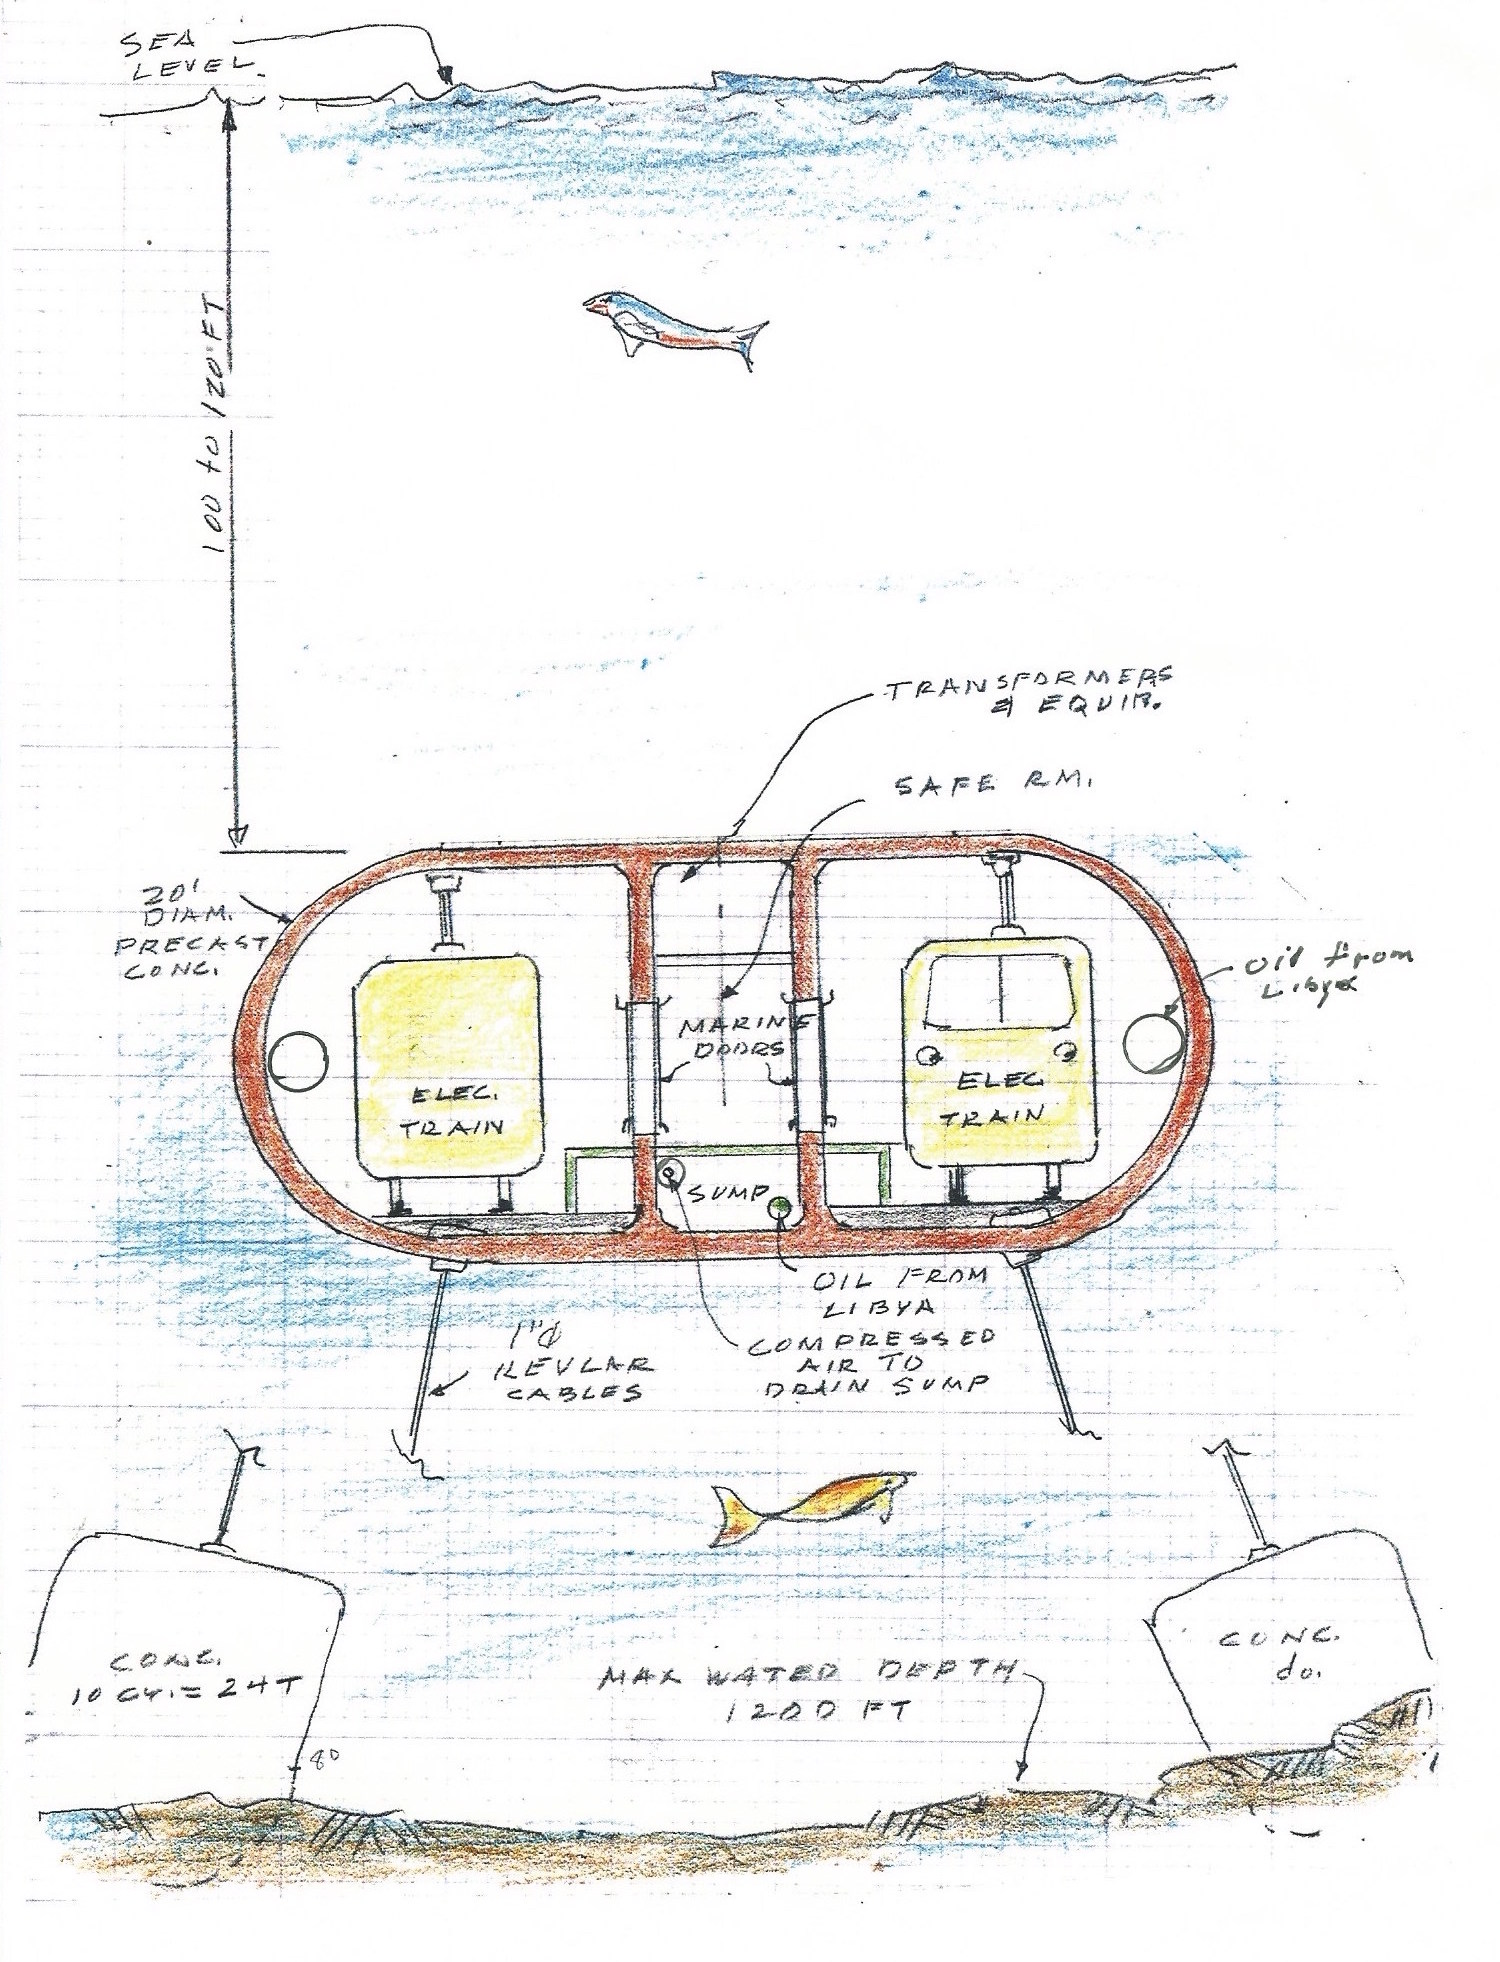 SEA
LEVEL.
100 to 120 FT
TRANSFORMERS
& EQUIP.
SAFE RM.
20'
DIAM.
PRECAST
CONC.
oil from
Libya
MARINE
DOORS
ELEC.
TRAIN
ELEC.
TRAIN
SUMP
OIL FROM
LIBYA
COMPRESSED
AIR TO
DRAIN SUMP
1"Ø
KEVLAR
CABLES
CONC.
10 CY. = 24T
CONC.
do.
MAX WATER DEPTH
1200 FT
80